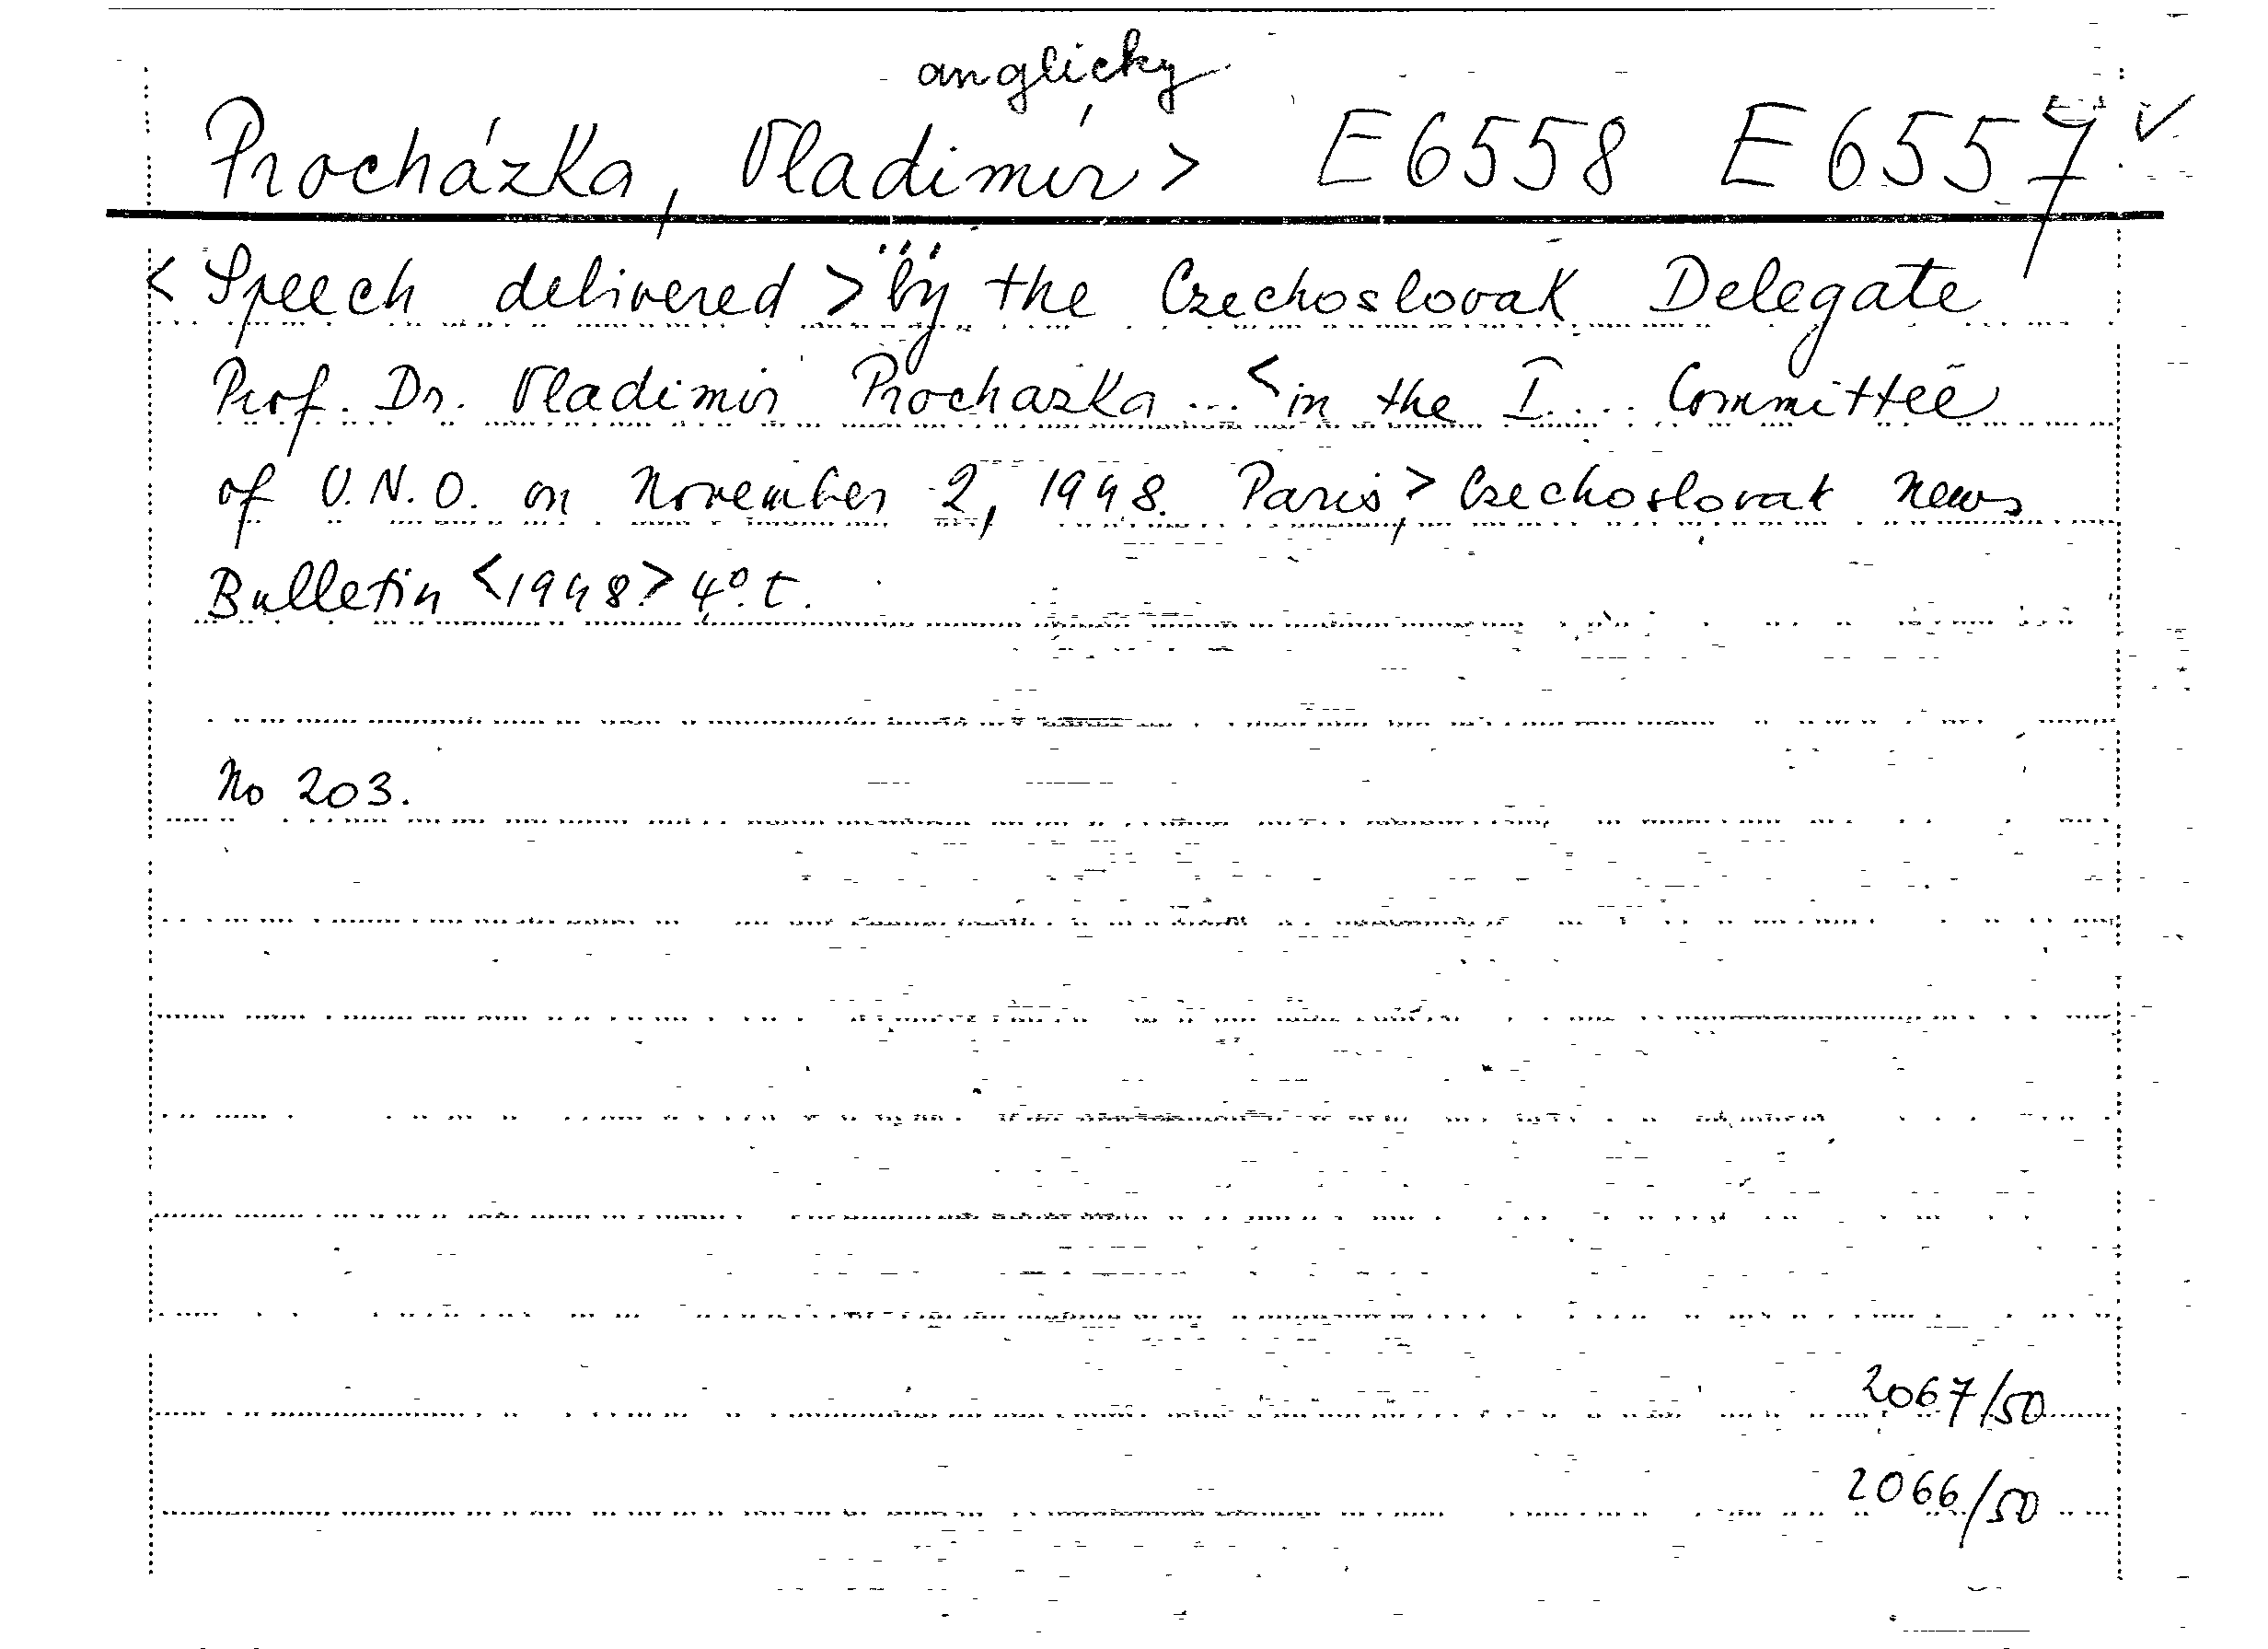 anglicky
Procházka, Vladimír > E6558 E6557 ✓
< Speech delivered > by the Czechoslovak Delegate
Prof. Dr. Vladimír Prochazka ... < in the I .... Committee
of U.N.O. on November 2, 1948. Paris, > Czechoslovak news
Bulletin < 1948 > 4°. t.
No 203.
2067/50
2066/50